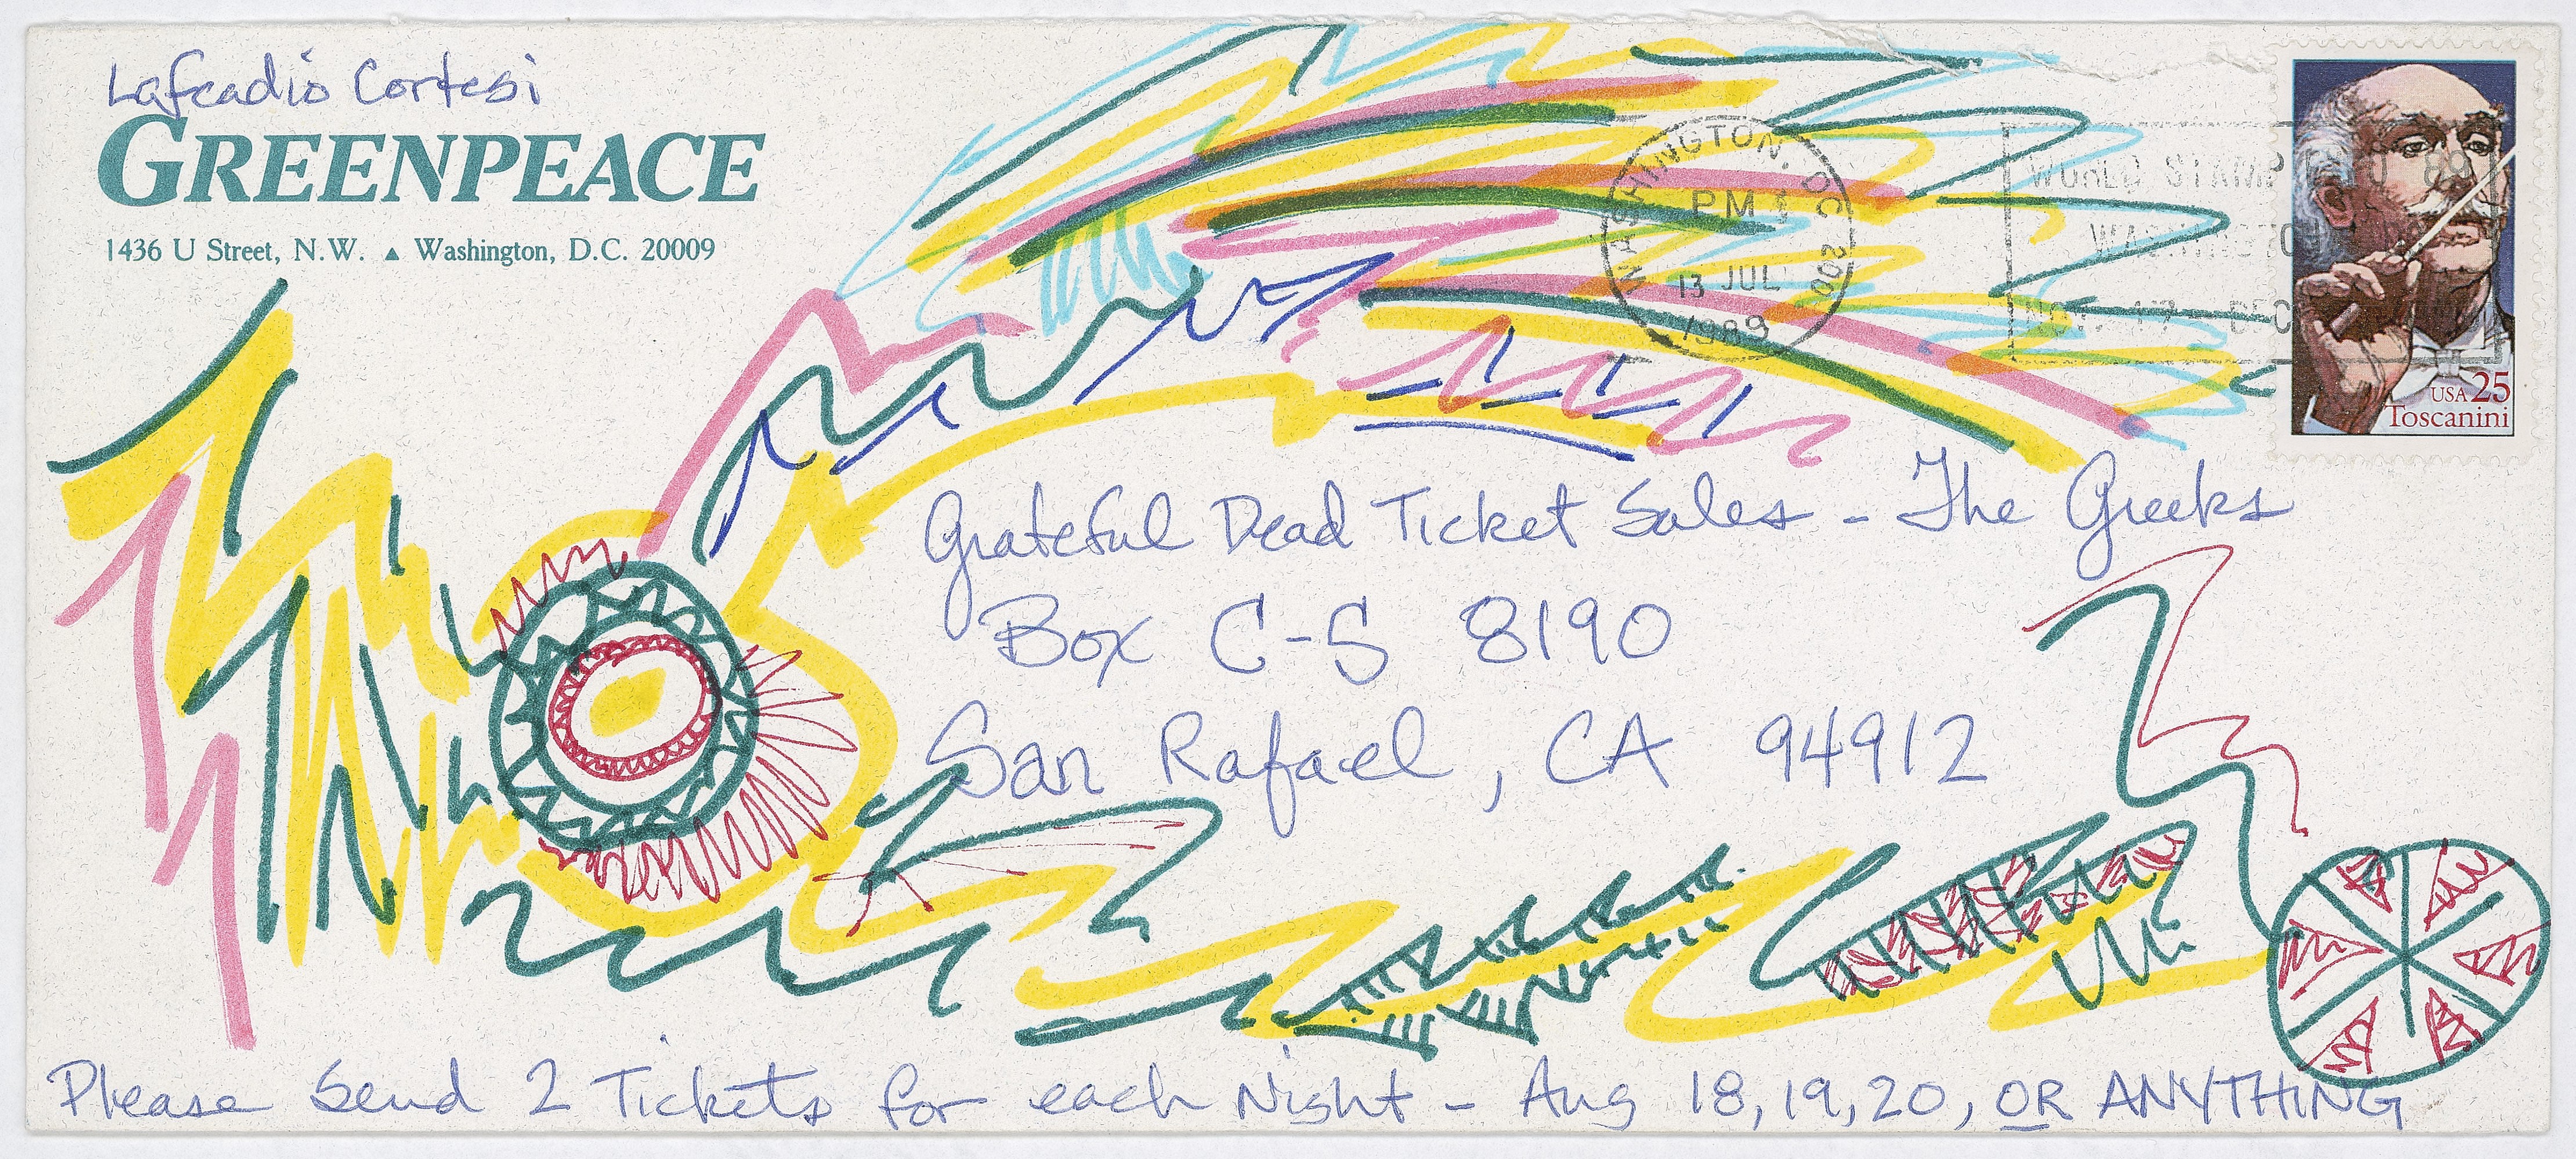 Lafcadio Cortesi
GREENPEACE
1436 U Street, N.W. ▲ Washington, D.C. 20009
WASHINGTON, D.C. 200
PM
13 JUL
1989
WORLD STAMP EXPO 89
WASHINGTON
NOV. 17 - DEC
USA 25
Toscanini
Grateful Dead Ticket Sales - The Greeks
Box C-S 8190
San Rafael, CA 94912
Please Send 2 Tickets for each Night - Aug 18, 19, 20, OR ANYTHING